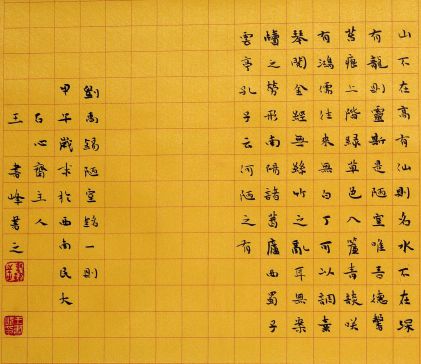 山不在高有仙則名水不在深
有龍則靈斯是陋室唯吾德馨
苔痕上階緑草色入簾青談咲
有鴻儒往來無白丁可以調素
琴閱金經無絲竹之亂耳無案
牘之勞形南陽諸葛廬西蜀子
雲亭孔子云何陋之有
劉禹錫陋室銘一則
甲午歲末於西南民大
心齋主人
王書峰